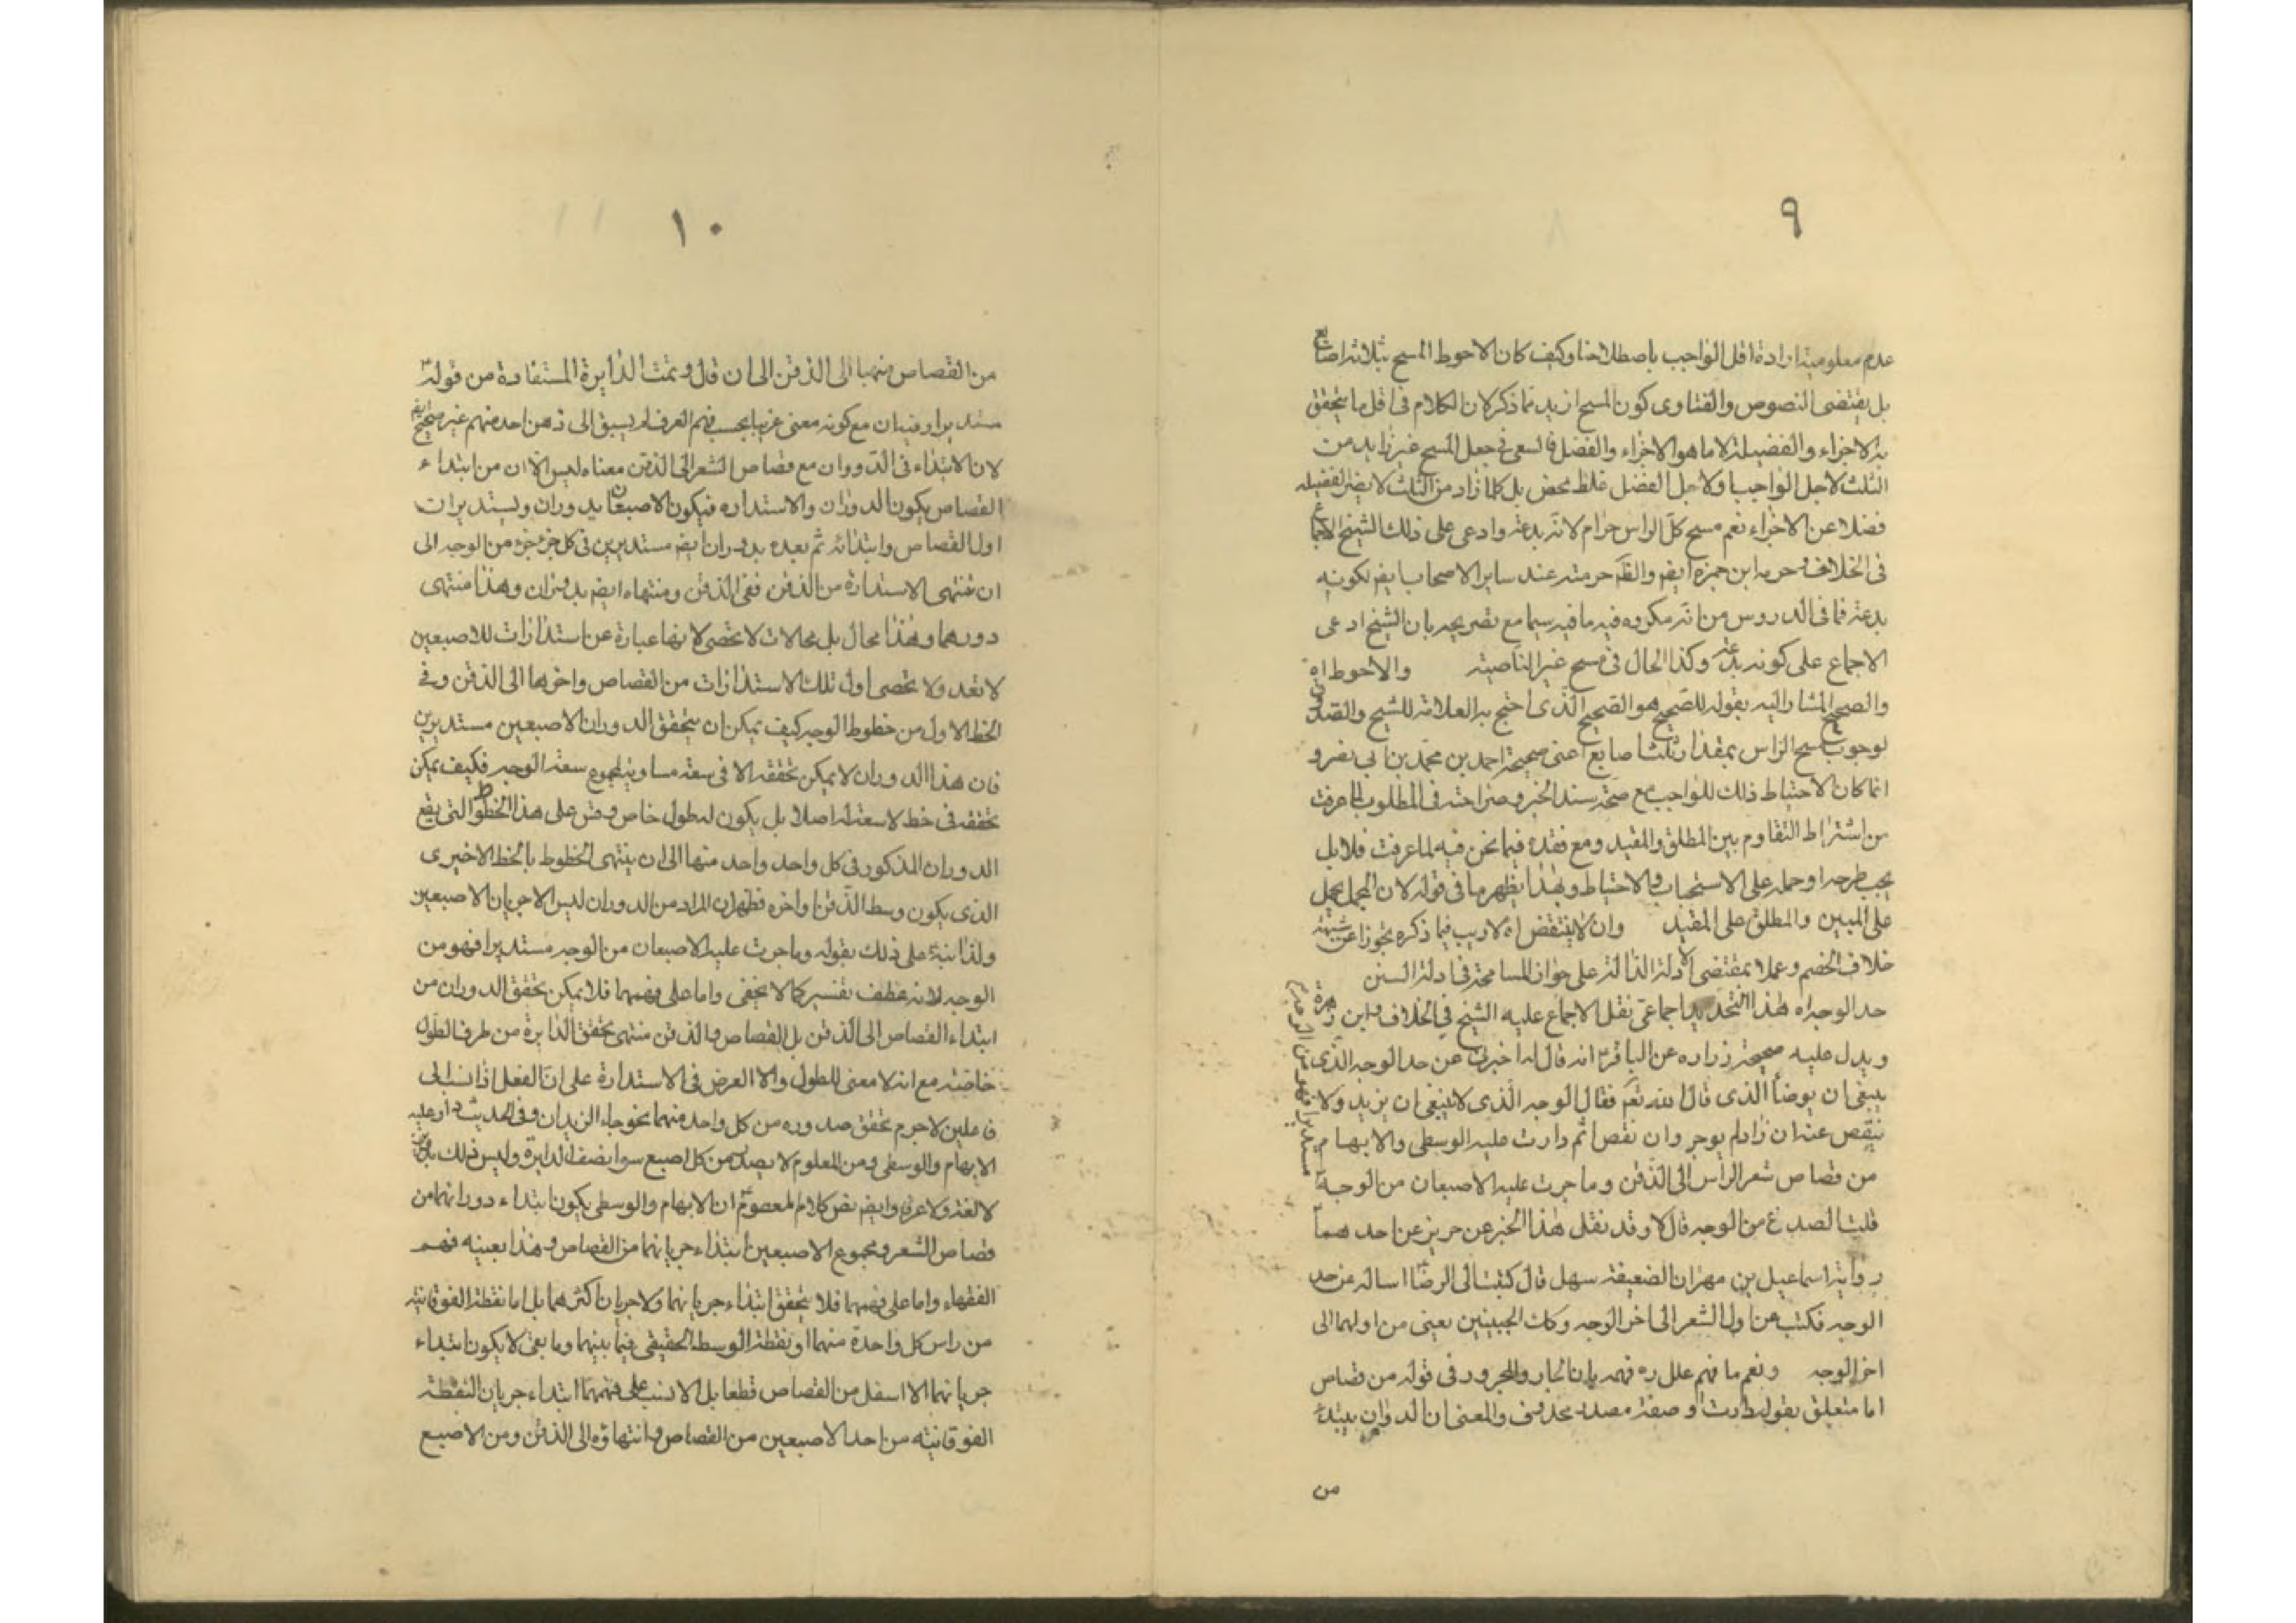 ٩
عدم معلومية ارادة اقل الواجب باصطلاحنا وكيف كان الاحوط المسح بثلاثة اصابع
بل يقتضى النصوص والفتاوى كون المسح ازيد مما ذكر لان الكلام فى اقل ما يتحقق
به الاجزاء والفضيلة لا ما هو الاجزاء والفضل فالسعى فى جعل المسح غير زايد من
الثلث لاجل الواجب او لاجل الفضل غلط محض بل كلما زاد من الثلث لا يضر الفضيلة
فضلا عن الاجزاء نعم مسح كل الراس حرام لانه بدعة وادعى على ذلك الشيخ الاجماع
فى الخلاف وحرمه ابن حمزه ايضا والظّ حرمته عند ساير الاصحاب ايضا لكونه
بدعة فما فى الدروس من انه مكروه فيه ما فيه سيما مع تصريحه بان الشيخ ادعى
الاجماع على كونه بدعة وكذا الحال فى مسح غير الناصية والاحوط اه
والصحيح المشار اليه بقوله للصحيح هو الصحيح الذى احتج به العلامة للشيخ والصدوق
لوجوب مسح الراس بمقدار ثلث اصابع اعنى صحيحة احمد بن محمد بن ابى نصر و
انما كان الاحتياط ذلك للواجب مع صحة سند الخبر وصراحته فى المطلوب لما عرفت
من اشتراط التقاوم بين المطلق والمقيد ومع فقده فيما نحن فيه لما عرفت فلا بل
يجب طرحه او حمله على الاستحباب والاحتياط وبهذا يظهر ما فى قوله لان المجمل يحمل
على المبين والمطلق على المقيد وان لا ينتقض اه لا ريب فيما ذكره تحوزا عن شبهة
خلاف الخصم وعملا بمقتضى الادلة الدالة على جواز المسامحة فى ادلة السنن
حد الوجه اه هذا التحديد اجماعى نقل الاجماع عليه الشيخ فى الخلاف وابن زهرة
ويدل عليه صحيحة زراره عن الباقرع انه قال له اخبرنى عن حد الوجه الذى
ينبغى ان يوضأ الذى قال الله تعم فقال الوجه الذى لا ينبغى ان يزيد ولا
ينقص عنه ان زاد لم يوجر وان نقص اثم دارت عليه الوسطى والابهام
من قصاص شعر الراس الى الذقن وما جرت عليه الاصبعان من الوجه
مستديرا فهو من الوجه
قلت الصدغ من الوجه قال لا وقد نقل هذا الخبر عن حريز عن احدهما
رواية اسماعيل بن مهران الضعيفة سهل قال كتبت الى الرضا اساله عن حد
الوجه فكتب من اول الشعر الى اخر الوجه وكك الجبينين يعنى من اولهما الى
اخر الوجه ونعم ما فهم علل ره فهمه بان الجار والمجرور فى قوله من قصاص
اما متعلق بقوله دارت او صفة مصدر محذوف والمعنى ان الدوران يبتدء
من
١٠
من القصاص منهيا الى الذقن الى ان قال وتمت الدايرة المستفادة من قوله ع
مستديرا وفيه ان مع كونه معنى غريبا بحسب فهم العرف لم يسبق الى ذهن احد منهم غير صحيح ايض
لان الابتداء فى الدوران مع قصاص الشعر الى الذقن معناه ليس الا ان من ابتداء
القصاص يكون الدوران والاستداره فيكون الاصبعان يدوران ويستديران
اول القصاص وابتدائه ثم بعده يدوران ايض مستديرين فى كل جزء جزء من الوجه الى
ان تنتهى الاستدارة من الذقن ففى الذقن ومنتهاه ايض يدوران وهذا منتهى
دورهما وهذا محال بل محالات لا تحصى لانها عبارة عن استدارات للاصبعين
لا تعد ولا تحصى اول تلك الاستدارات من القصاص واخرها الى الذقن وفى
الخط الاول من خطوط الوجه كيف يمكن ان يتحقق الدوران الاصبعين مستديرين
فان هذا الدوران لا يمكن تحققه الا فى سعة مساوية لمجموع سعة الوجه فكيف يمكن
تحققه فى خط لا سعة له اصلا بل يكون له طول خاص وقس على هذا الخطوط التى يقع
الدوران المذكور فى كل واحد واحد منها الى ان ينتهى الخطوط بالخط الاخيرى
الذى يكون وسط الذقن واخره فظهر ان المراد من الدوران ليس الا جريان الاصبعين
ولذا نبه ع على ذلك بقوله وما جرت عليه الاصبعان من الوجه مستديرا فهو من
الوجه لانه عطف تفسير كما لا يخفى واما على فهمها فلا يمكن تحقق الدوران من
ابتداء القصاص الى الذقن بل القصاص والذقن منتهى تحقق الدايرة من طرف الطول
خاصة مع انه لا معنى للطول والا العرض فى الاستدارة على ان الفعل اذا نسب الى
فاعلين لا جرم تحقق صدوره من كل واحد منهما نحو جاء الزيدان وفى الحديث دار عليه
الابهام والوسطى ومن المعلوم لا يصدر من كل اصبع سوا نصف الدايرة وليس ذلك بدوران
لا لغة ولا عرفا وايض نص كلام المعصوم ع ان الابهام والوسطى يكون ابتداء دورانهما من
قصاص الشعر ومجموع الاصبعين ابتداء جريانهما من القصاص وهذا بعينه فهم
الفقهاء واما على فهمهما فلا يتحقق ابتداء جريانهما ولا جريان اكثرهما بل اما نقطة الفوقانية
من راس كل واحدة منهما او نقطة الوسط الحقيقى فيما بينهما وما بقى لا يكون ابتداء
جريانهما الا اسفل من القصاص قطعا بل الانسب على فهمهما ابتداء جريان النقطة
الفوقانية من احد الاصبعين من القصاص وانتهاؤه الى الذقن ومن الاصبع